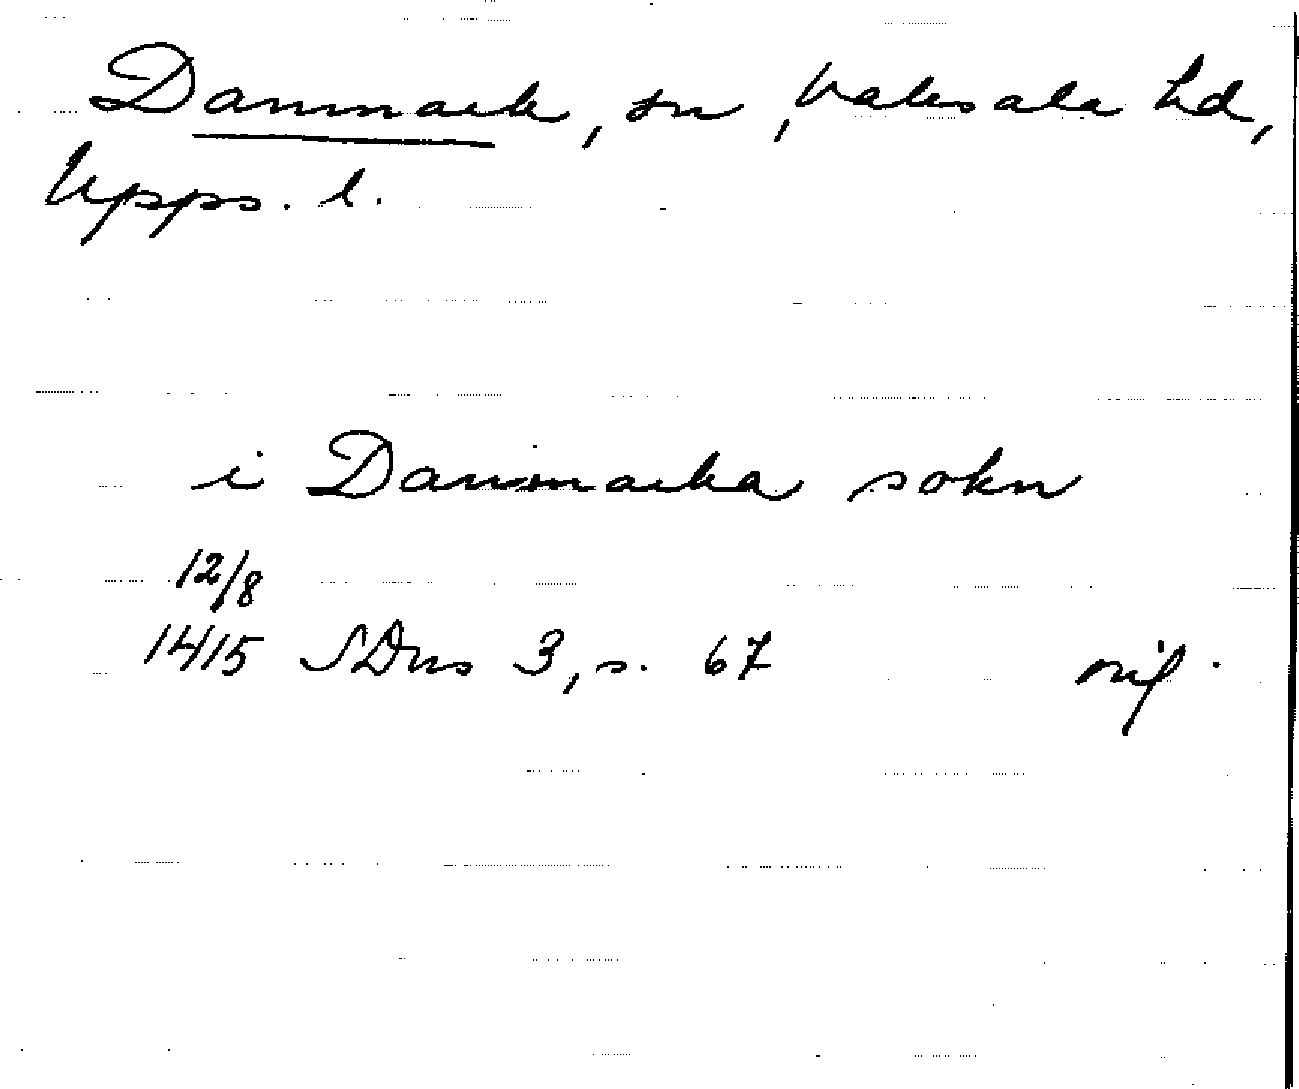 Danmark, sn, Vaksala hd,
Upps. l.
i Danmarka sokn
12/8
1415 SDns 3, s. 67 orig.